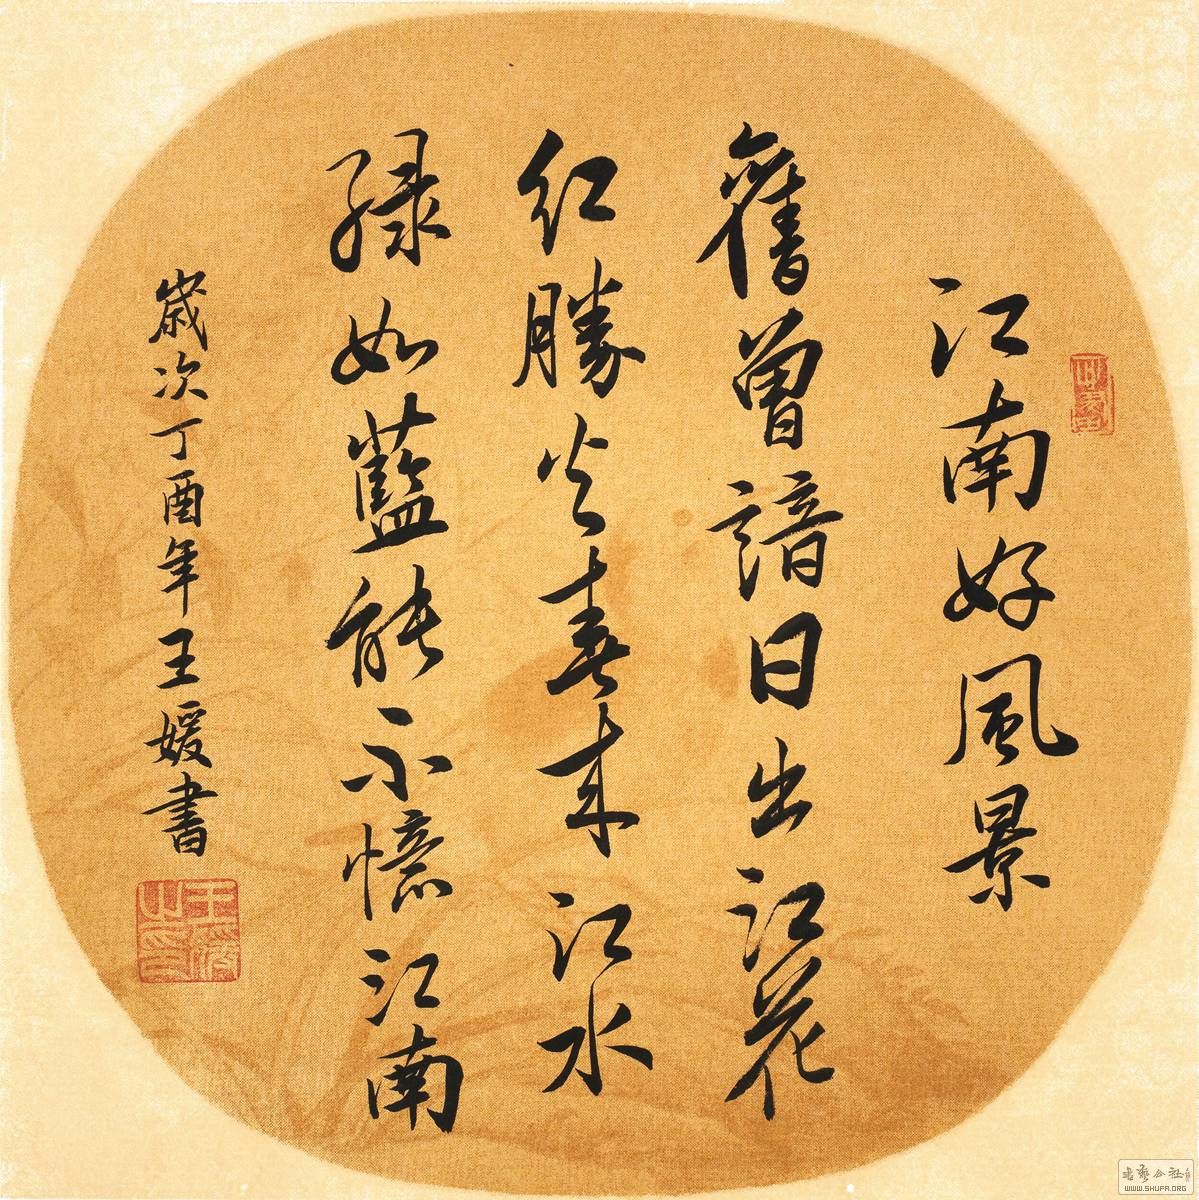 江南好風景
舊曾諳日出江花
紅勝火春來江水
緑如藍能不憶江南
歳次丁酉年王媛書
王媛之印
WWW.SHUFA.ORG